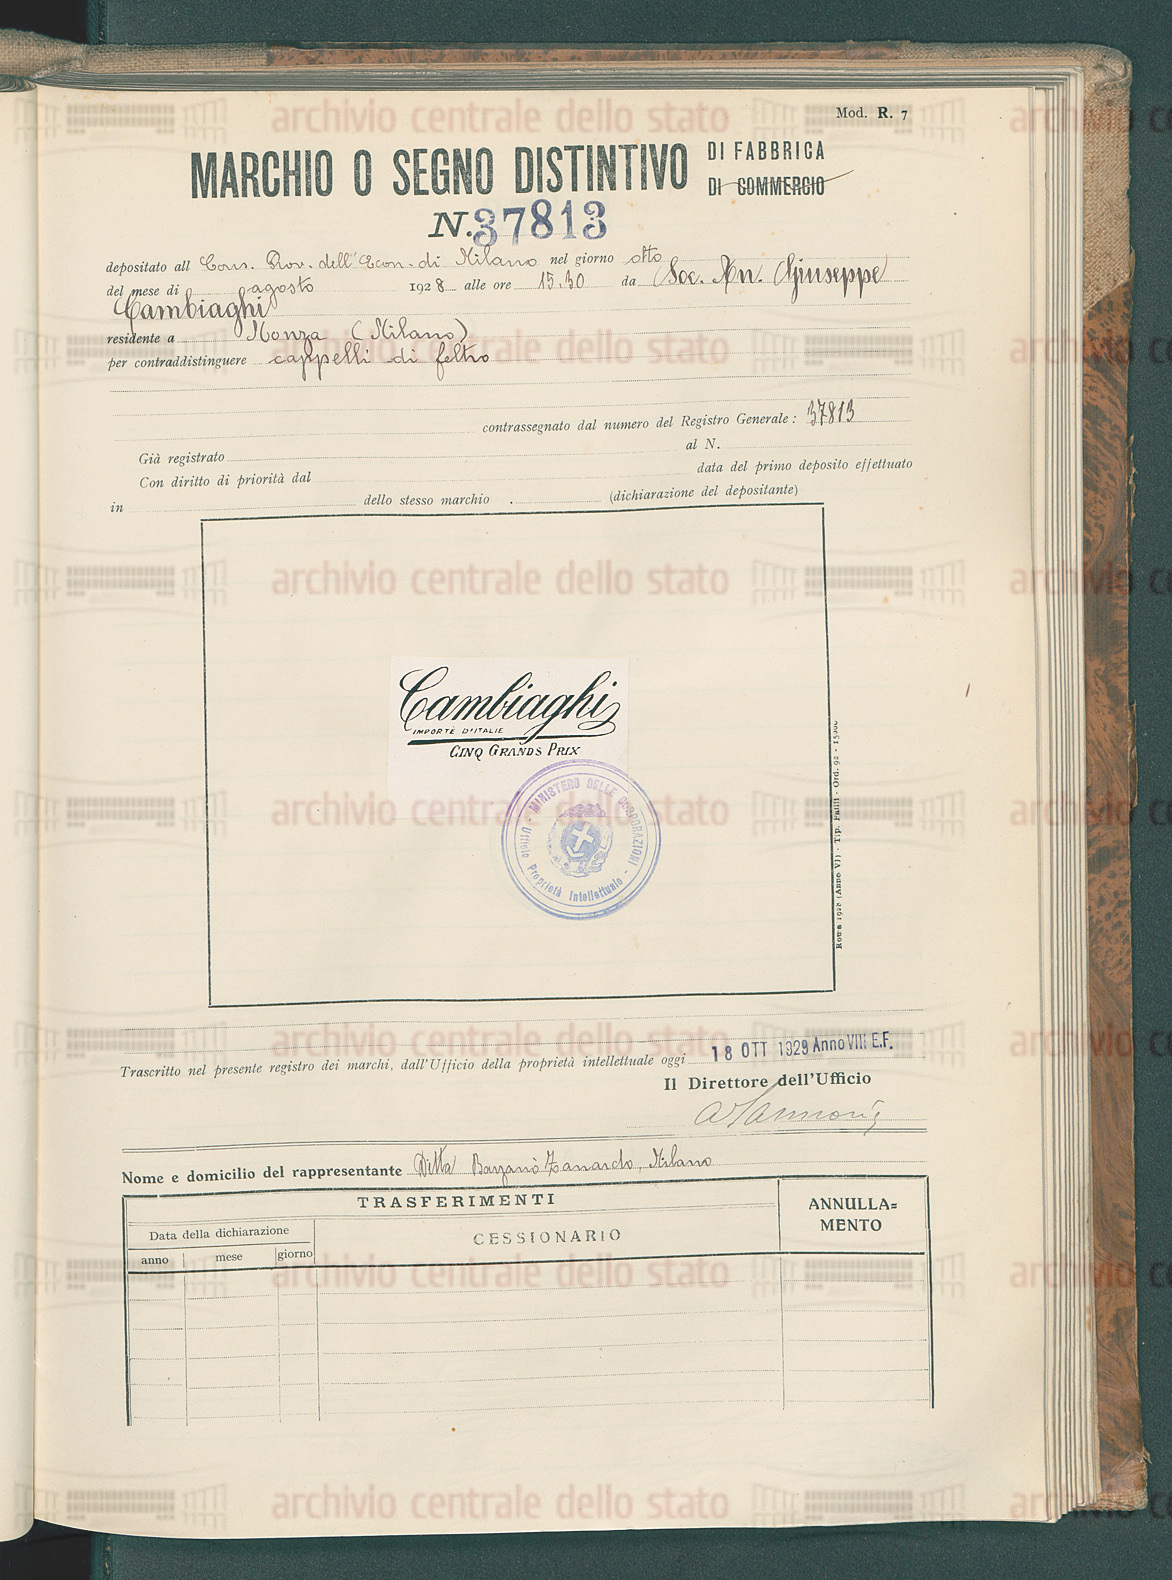 Mod. R. 7
MARCHIO O SEGNO DISTINTIVO DI FABBRICA
DI COMMERCIO
N. 37813
depositato all Cons. Prov. dell'Econ. di Milano nel giorno otto
del mese di agosto 1928 alle ore 15.30 da Soc. An. Giuseppe
Cambiaghi
residente a Monza (Milano)
per contraddistinguere cappelli di feltro
contrassegnato dal numero del Registro Generale: 37813
Già registrato al N.
Con diritto di priorità dal data del primo deposito effettuato
in dello stesso marchio . (dichiarazione del depositante)
Cambiaghi
IMPORTÉ D'ITALIE
CINQ GRANDS PRIX
MINISTERO DELLE CORPORAZIONI
Ufficio Proprietà Intellettuale
Roma 1928 (Anno VI) - Tip. Failli - Ord. 92 - 15000
Trascritto nel presente registro dei marchi, dall'Ufficio della proprietà intellettuale oggi 18 OTT 1929 Anno VIII E.F.
Il Direttore dell'Ufficio
Nome e domicilio del rappresentante Ditta Barzanò Zanardo, Milano
TRASFERIMENTI
ANNULLA=
MENTO
Data della dichiarazione
CESSIONARIO
anno mese giorno
archivio centrale dello stato